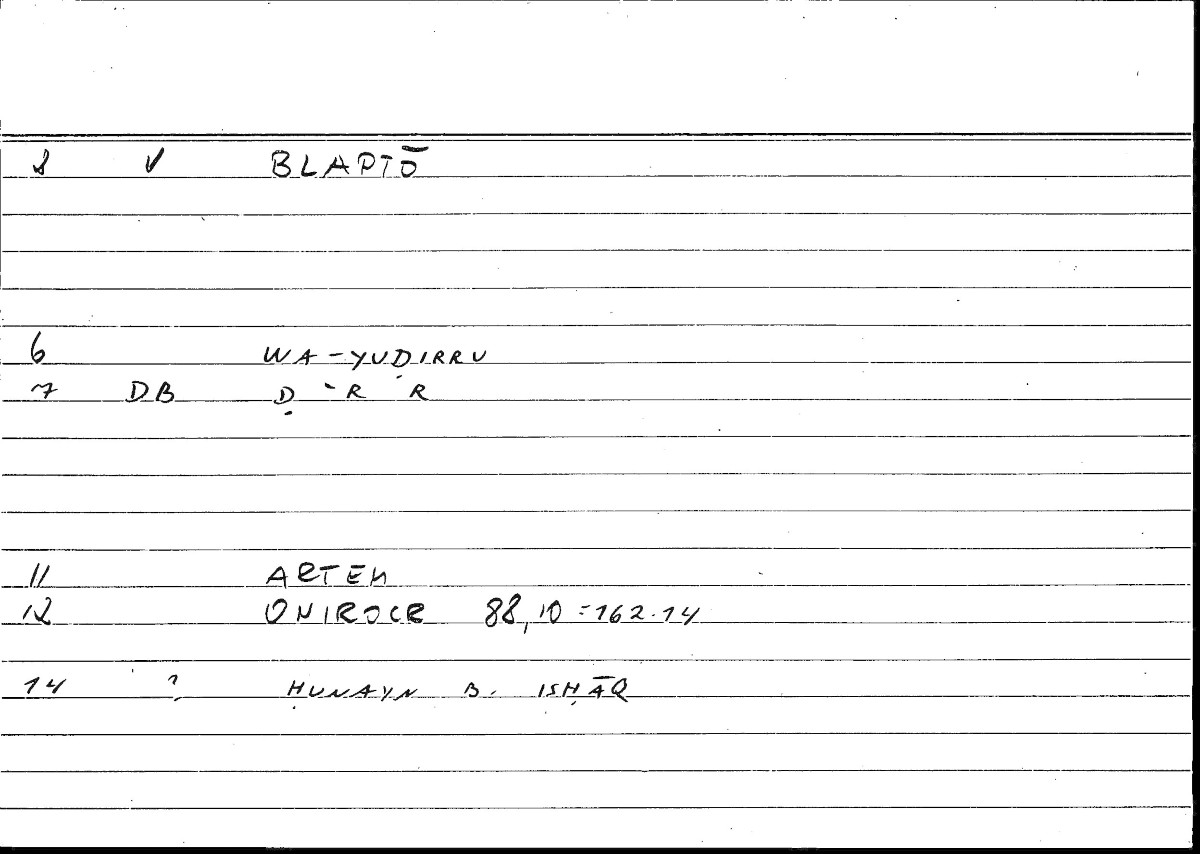 1 V BLAPTŌ
6 WA-YUḌIRRU
7 DB Ḍ-R R
11 ARTEM
12 ONIROCR 88,10=162.14
14 ? ḤUNAYN B. ISḤĀQ